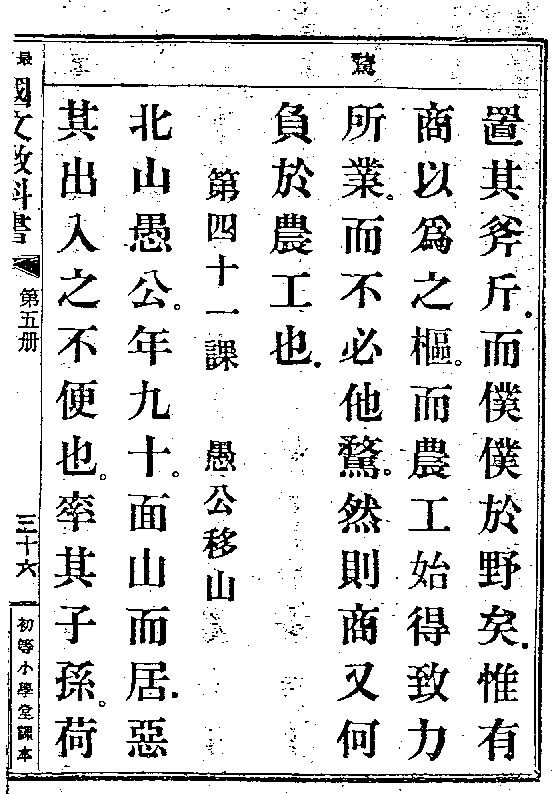 鶩
置其斧斤.而僕僕於野矣.惟有
商以爲之樞。而農工始得致力
所業。而不必他鶩。然則商又何
負於農工也.
第四十一課　愚公移山
北山愚公。年九十。面山而居.惡
其出入之不便也。率其子孫。荷
最
國文教科書
第五册
三十六
初等小學堂課本